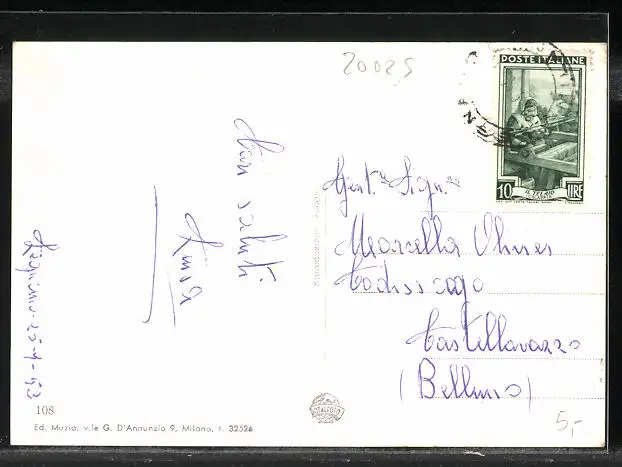 20025
POSTE ITALIANE
10 LIRE
IL TELAIO
Cari saluti
Gent.ma Sign.na
Marcella Olivier
Codissago
Castellavazzo
(Belluno)
25-7-53
108
Ed. Muzio, v.le G. D'Annunzio 9, Milano, t. 32526
5,-